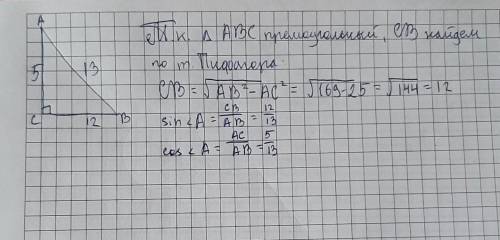 A
5
13
C
12
B
Т.к. Δ ABC прямоугольный, CB найдем
по т. Пифагора.
CB = √AB² - AC² = √169-25 = √144 = 12
sin∠A = CB/AB = 12/13
cos∠A = AC/AB = 5/13